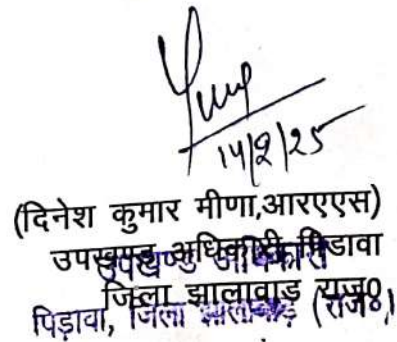 14/2/25
(दिनेश कुमार मीणा,आरएएस)
उपखण्ड अधिकारी, पिडावा
जिला झालावाड़ राज0
उपखण्ड अधिकारी
पिड़ावा, जिला झालावाड़ (राज०)